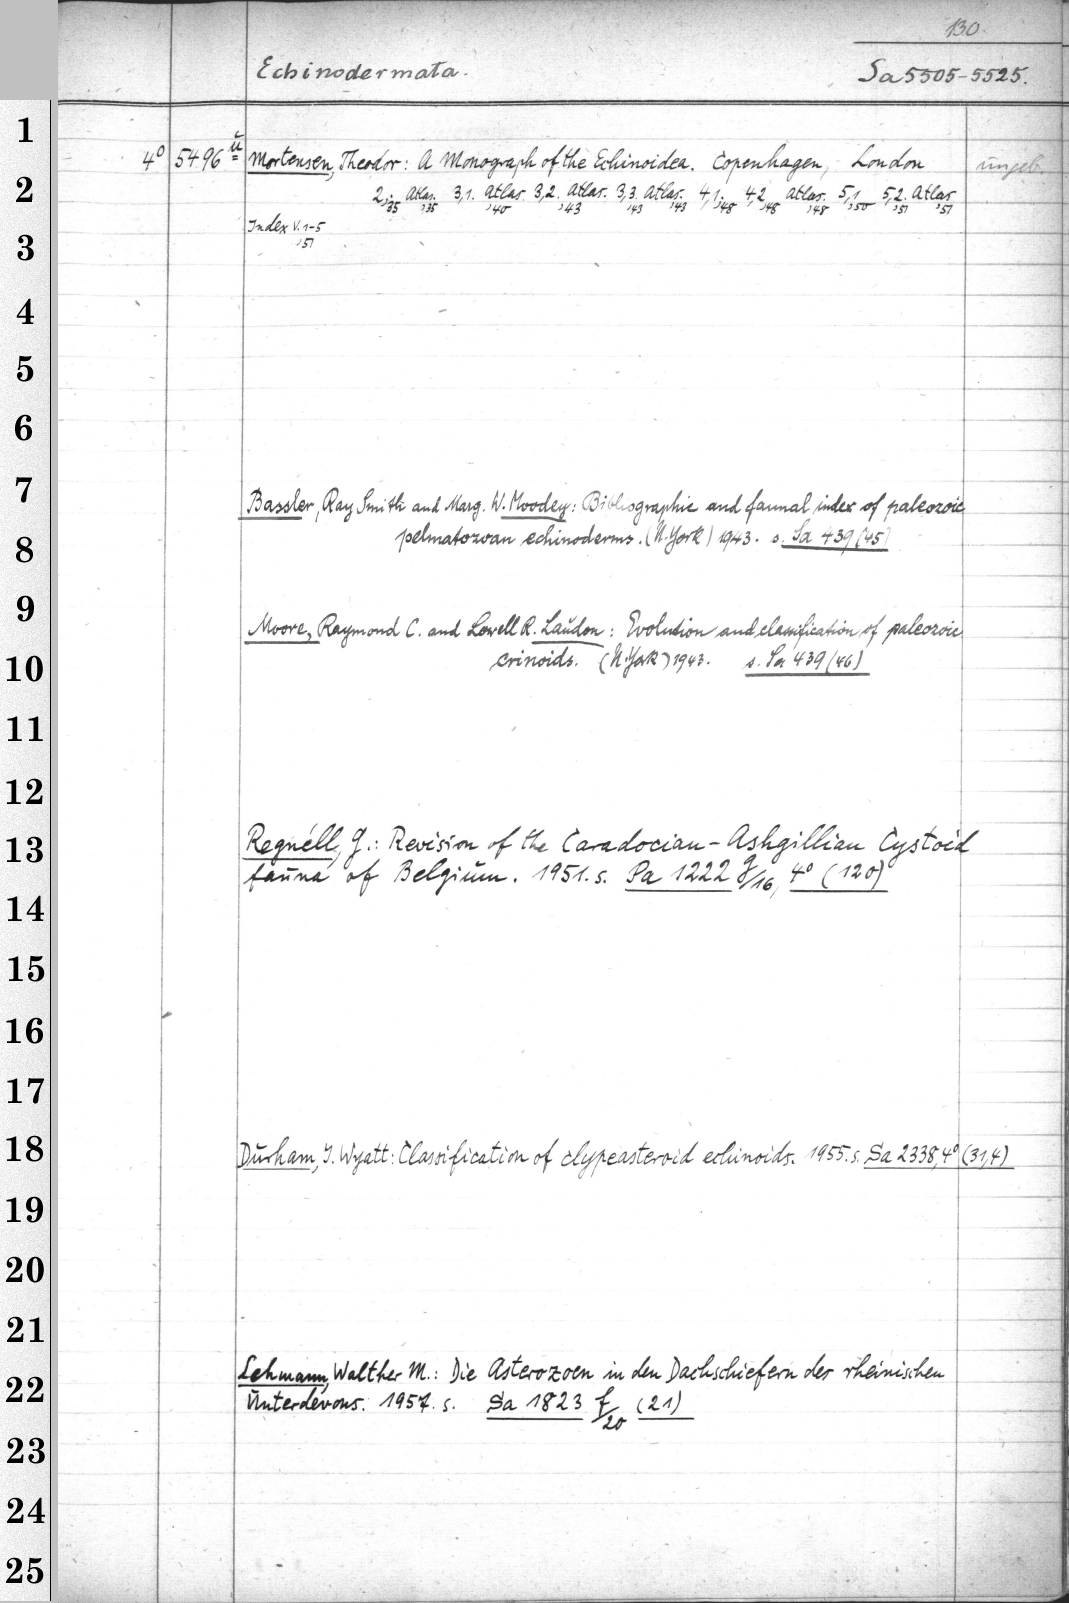 130.
Echinodermata. Sa 5505-5525.
4° 5496 ü Mortensen, Theodor: A Monograph of the Echinoidea. Copenhagen, London ungeb.
2,;35 Atlas,;35 3,1. Atlas,40 3,2. Atlas.,43 3,3,43 Atlas.,43 4,1,;48 4,2,48 Atlas.,48 5,1,50 5,2.,51 Atlas,51
Index V. 1-5,51
Bassler, Ray Smith and Marg. W. Moodey: Bibliographic and faunal index of paleozoic
pelmatozoan echinoderms. (N. York) 1943. s. Sa 439 (45)
Moore, Raymond C. and Lowell R. Laudon: Evolution and classification of paleozoic
crinoids. (N. York) 1943. s. Sa 439 (46)
Regnéll, G.: Revision of the Caradocian-Ashgillian Cystoid
fauna of Belgium. 1951. s. Pa 1222 g/16, 4° (120)
Durham, J. Wyatt: Classification of clypeasteroid echinoids. 1955. s. Sa 2338, 4° (31,4)
Lehmann, Walther M.: Die Asterozoen in den Dachschiefern des rheinischen
Unterdevons. 1957. s. Sa 1823 f/20 (21)
1
2
3
4
5
6
7
8
9
10
11
12
13
14
15
16
17
18
19
20
21
22
23
24
25